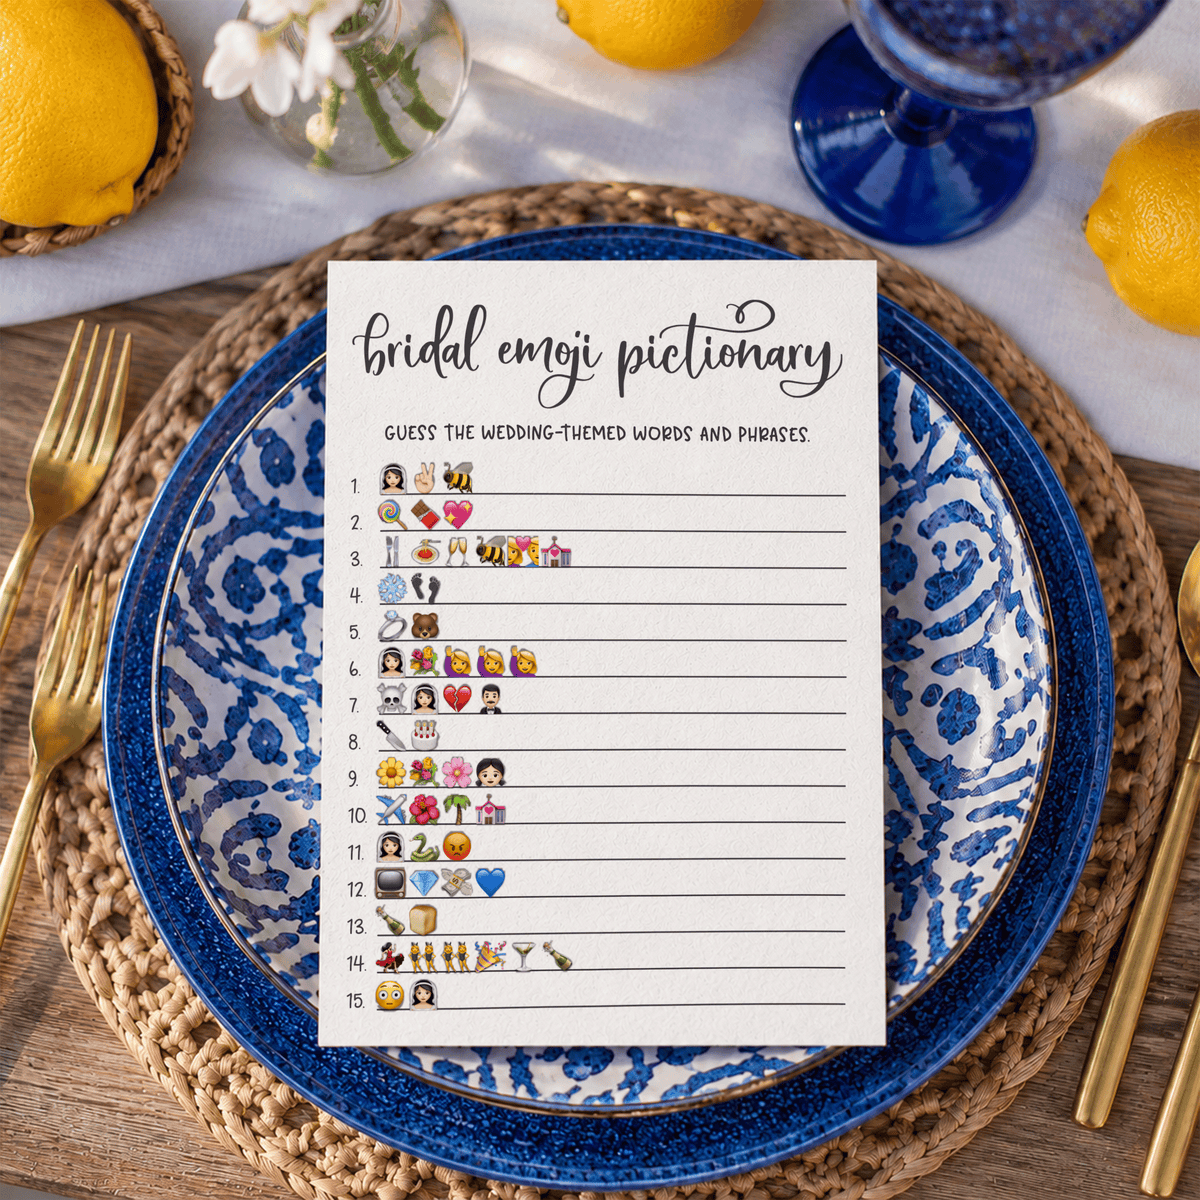 bridal emoji pictionary
GUESS THE WEDDING-THEMED WORDS AND PHRASES.
1. 👰✌🐝
2. 🍭🍫💖
3. 🍴🍝🥂🐝💑💒
4. ❄👣
5. 💍🐻
6. 👰💐🙋🙋🙋
7. ☠👰💔🤵
8. 🔪🎂
9. 🌼💐🌸👧
10. ✈🌺🌴💒
11. 👰🐍😡
12. 📺💎💸💙
13. 🍾🍞
14. 💃👯👯🎉🍸🍾
15. 😳👰